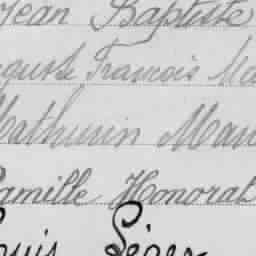 Jean Baptiste
guste François Ma
Mathurin Mau
Camille Honorat
ouis Léger